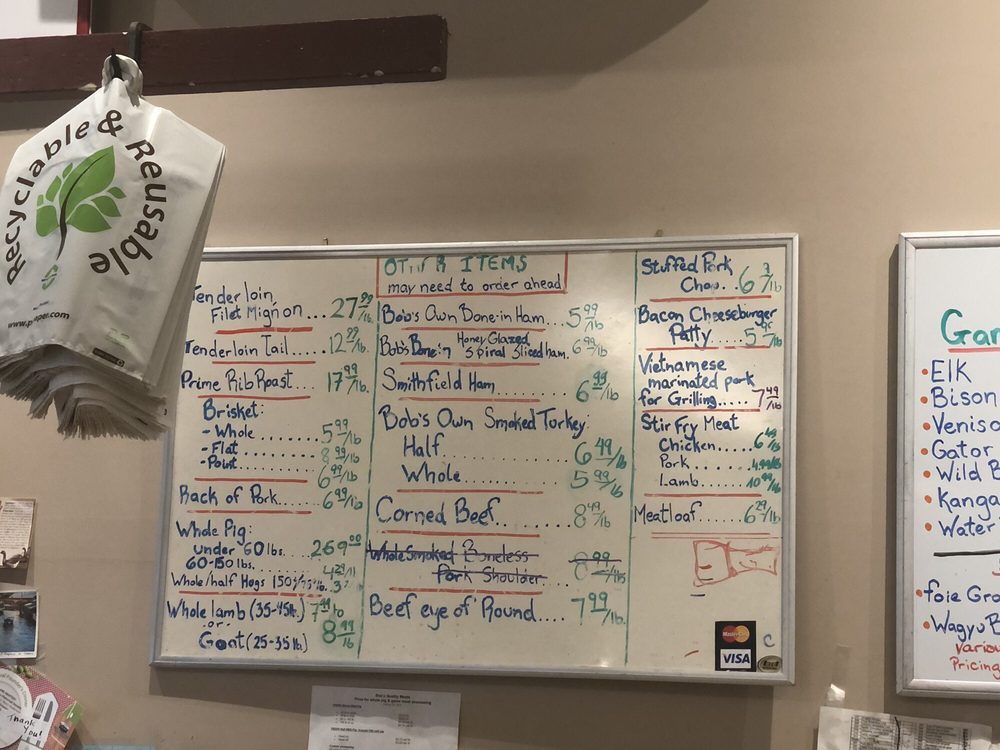 Recyclable & Reusable
Tenderloin,
Filet Mignon... 27.99/lb.
Tenderloin Tail.... 12.99/lb.
Prime Rib Roast.... 17.99/lb.
Brisket:
- Whole ........ 5.99/lb
- Flat ........ 8.99/lb
- Point ........ 6.99/lb
Rack of Pork.... 6.99/lb
Whole Pig:
under 60 lbs. ... 269.00
60-150 lbs.
Whole/half Hogs
Whole lamb (35-45lb.) 7.99/lb
-or-
Goat (25-35 lb) 8.99/lb
OTHER ITEMS
may need to order ahead
Bob's Own Bone-in Ham.... 5.99/lb
Honey Glazed
Bob's Bone-in Spiral Sliced ham. 6.99/lb
Smithfield Ham 6.99/lb
Bob's Own Smoked Turkey:
Half........ 6.49/lb
Whole........ 5.99/lb
Corned Beef........ 8.49/lb
Whole Smoked Boneless
Pork Shoulder 8.99/lb
Beef eye of Round.... 7.99/lb
Stuffed Pork
Chop..
Bacon Cheeseburger
Patty....
Vietnamese
marinated pork
for Grilling..... 7.49/lb
Stir Fry Meat
Chicken..... 6.49/lb
Pork ...... 4.99/lb
Lamb...... 10.99/lb
Meatloaf...... 6.29/lb
MasterCard
VISA
• Elk
• Bison
• Gator
• Wild
• Water
• foie
• Wagyu
Pricing
Thank
You!